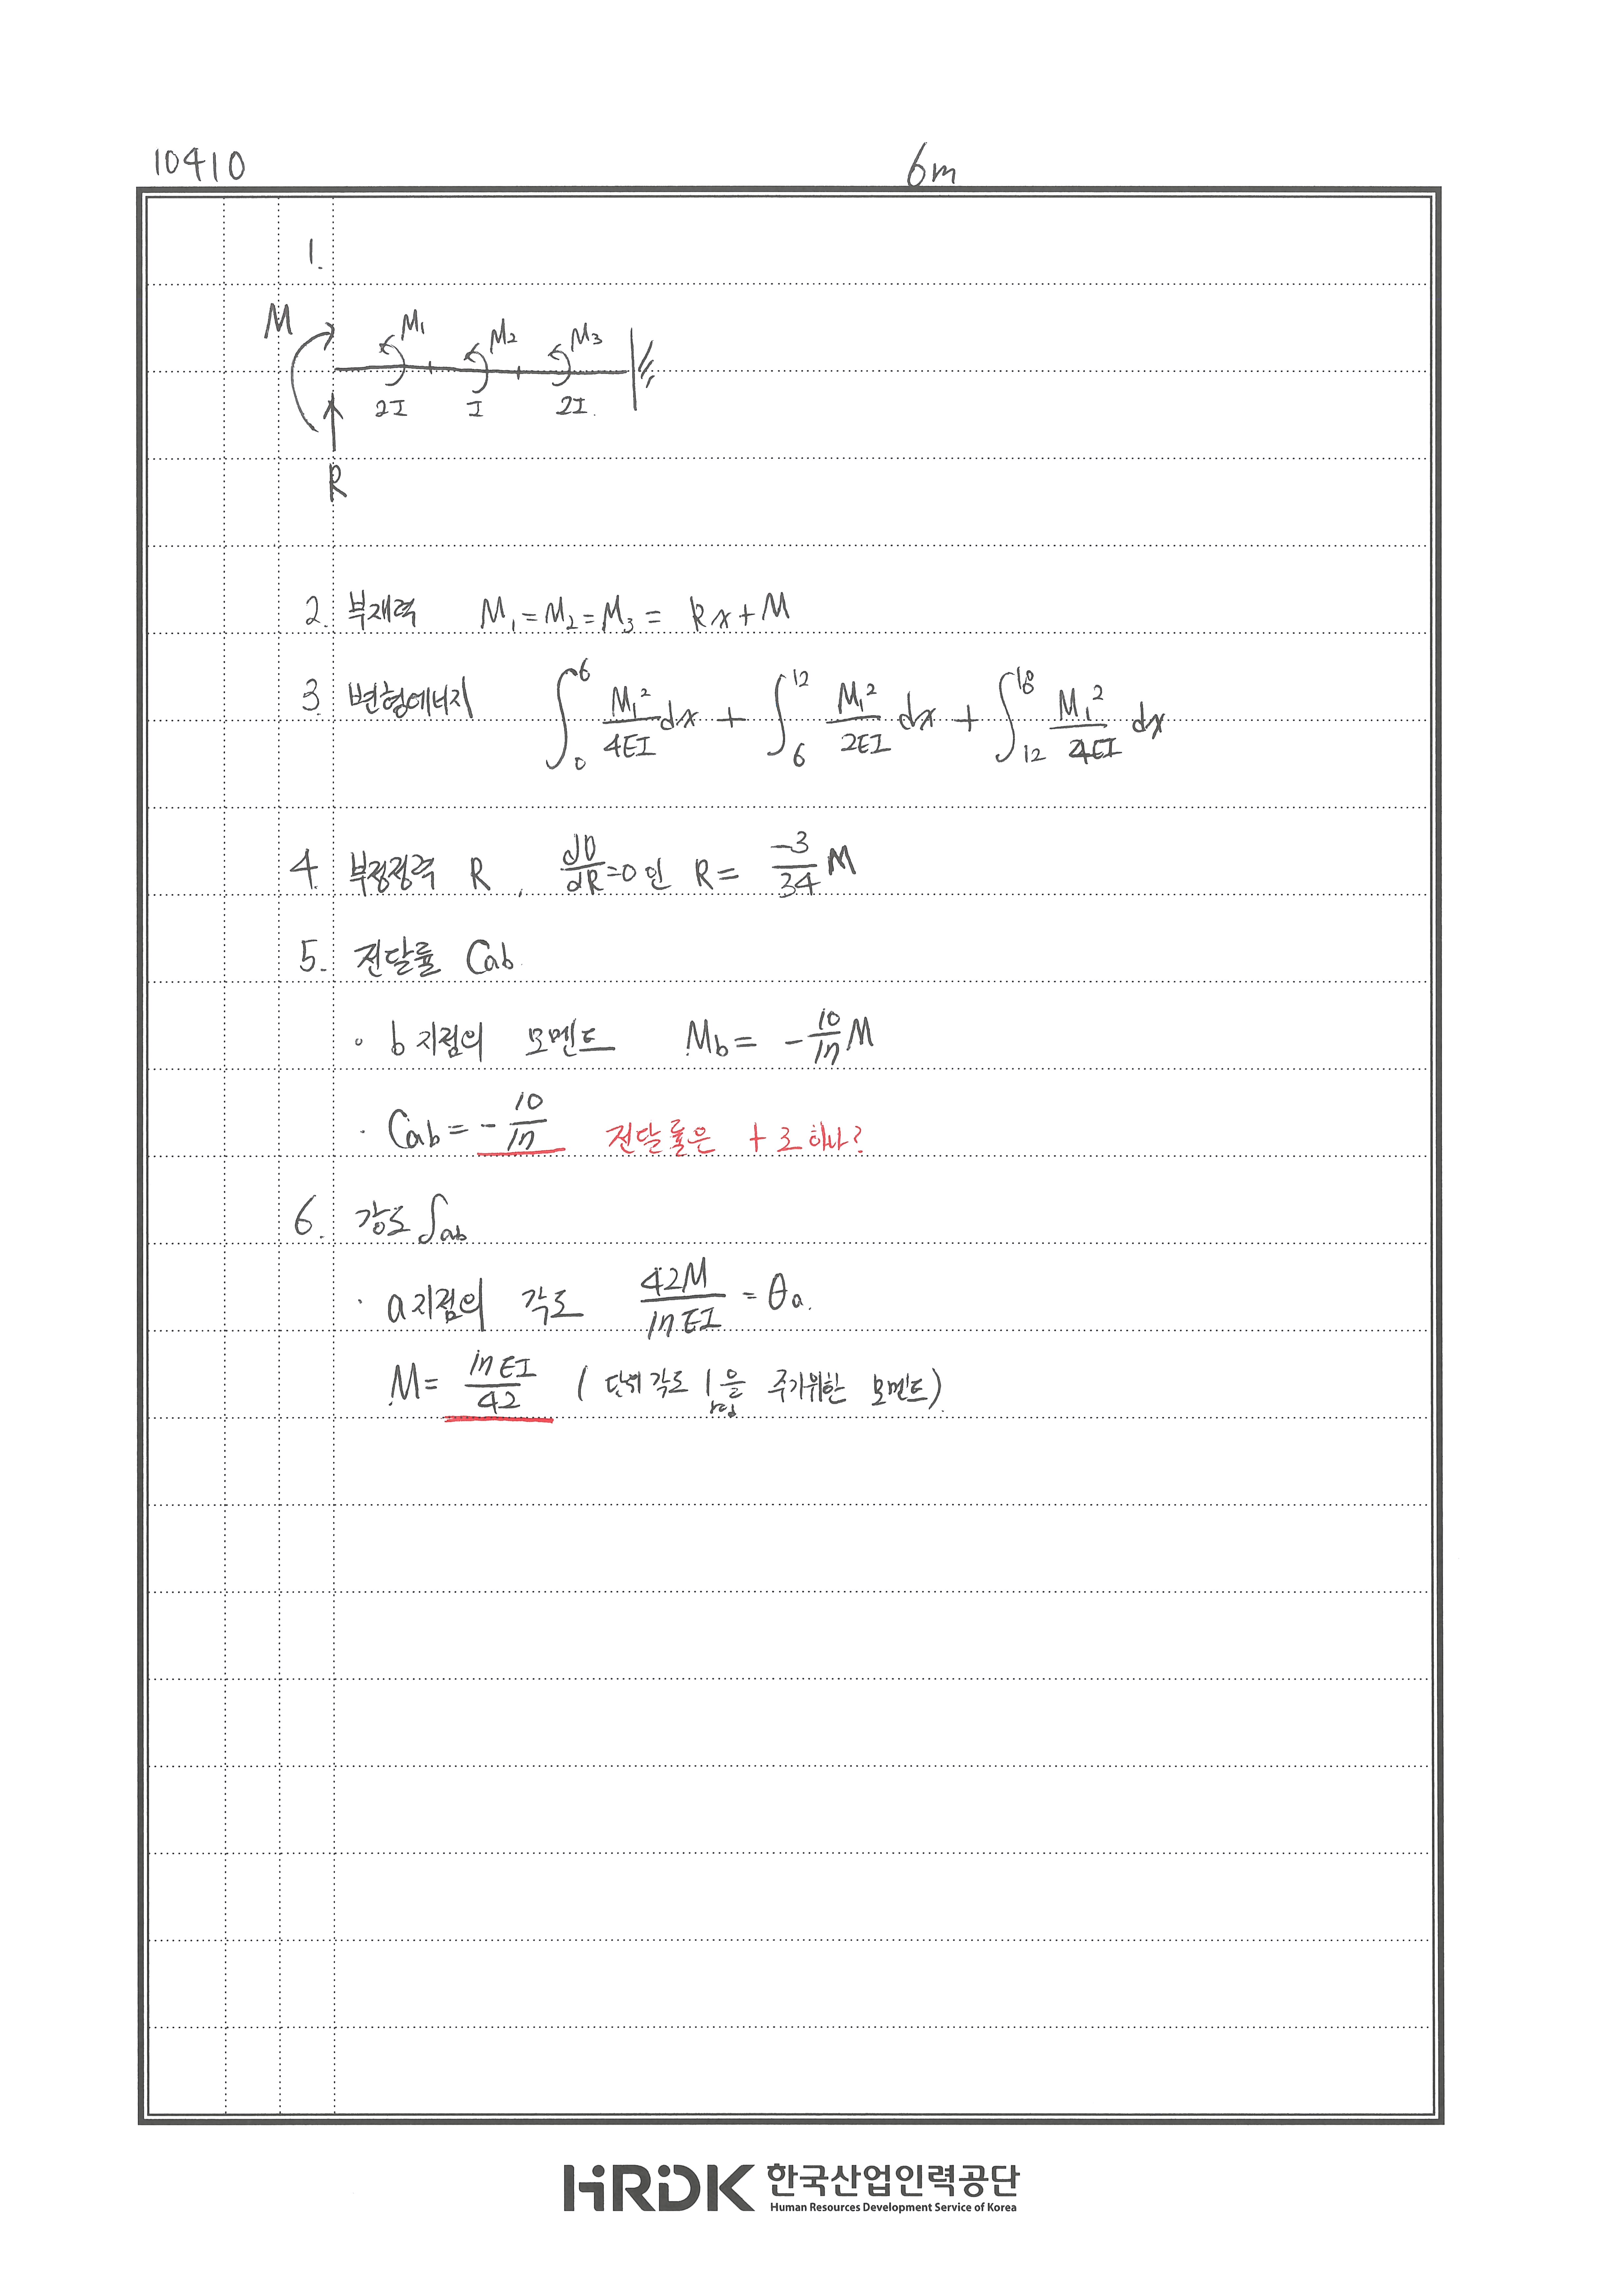 10410
6m
1.
M M1 M2 M3
2I I 2I.
R
2. 부재력 M₁=M₂=M₃= Rx+M
3. 변형에너지 ∫₀⁶ M₁²/4EI dx + ∫₆¹² M₁²/2EI dx + ∫₁₂¹⁸ M₁²/4EI dx
4. 부정정력 R, dU/dR=0인 R= -3/34 M
5. 전달률 Cab
· b지점의 모멘트 Mb= -10/17 M
· Cab= -10/17 전달률은 +로 하나?
6. 강도 Sab
· a지점의 각도 42M/17EI = θa.
M= 17EI/42 (단위각도 1을 주기위한 모멘트)
HRDK 한국산업인력공단
Human Resources Development Service of Korea